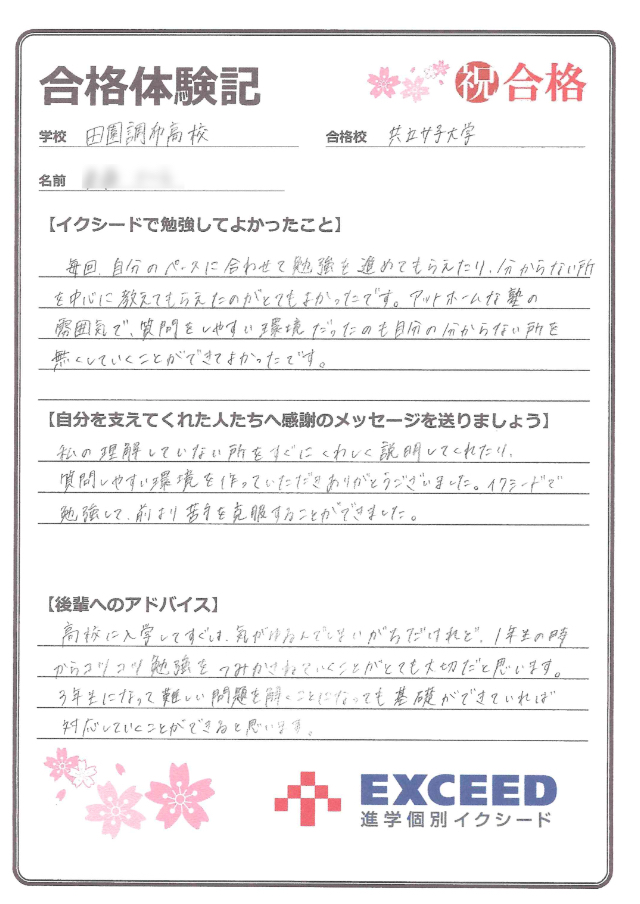 合格体験記
祝 合格
学校 田園調布高校
合格校 共立女子大学
名前
【イクシードで勉強してよかったこと】
毎回、自分のペースに合わせて勉強を進めてもらえたり、分からない所
を中心に教えてもらえたのがとてもよかったです。アットホームな塾の
雰囲気で、質問をしやすい環境だったのも自分の分からない所を
無くしていくことができてよかったです。
【自分を支えてくれた人たちへ感謝のメッセージを送りましょう】
私の理解していない所をすぐにくわしく説明してくれたり、
質問しやすい環境を作っていただきありがとうございました。イクシードで
勉強して、前より苦手を克服することができました。
【後輩へのアドバイス】
高校に入学してすぐは、気がゆるんでしまいがちだけれど、1年生の時
からコツコツ勉強をつみかさねていくことがとても大切だと思います。
3年生になって難しい問題を解くことになっても基礎ができていれば
対応していくことができると思います。
EXCEED
進学個別イクシード